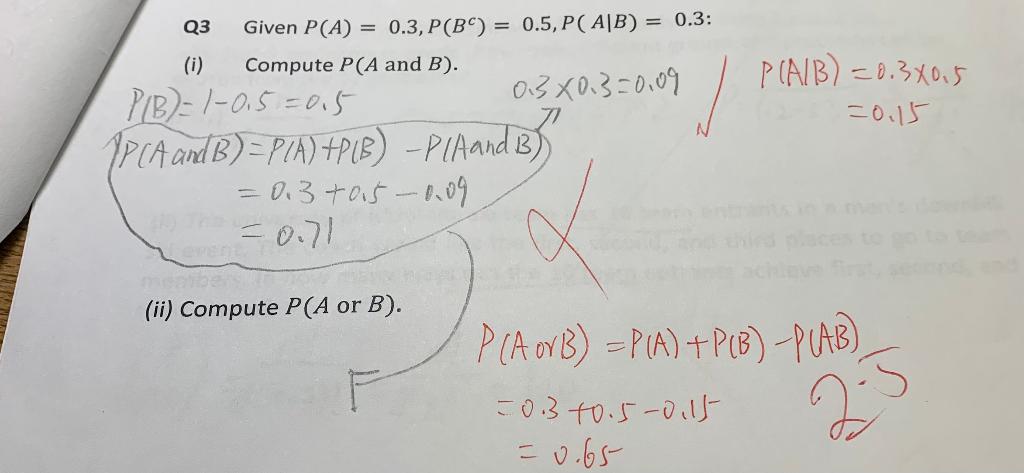 Q3 Given P(A) = 0.3, P(Bᶜ) = 0.5, P( A|B) = 0.3:
(i) Compute P(A and B).
P(B)=1-0.5=0.5
0.3×0.3=0.09
P(A|B)=0.3×0.5
=0.15
P(A and B)=P(A)+P(B) -P(A and B)
=0.3+0.5-0.09
=0.71
(ii) Compute P(A or B).
P(A or B) =P(A)+P(B)-P(AB)
=0.3+0.5-0.15
=0.65
2.5
F